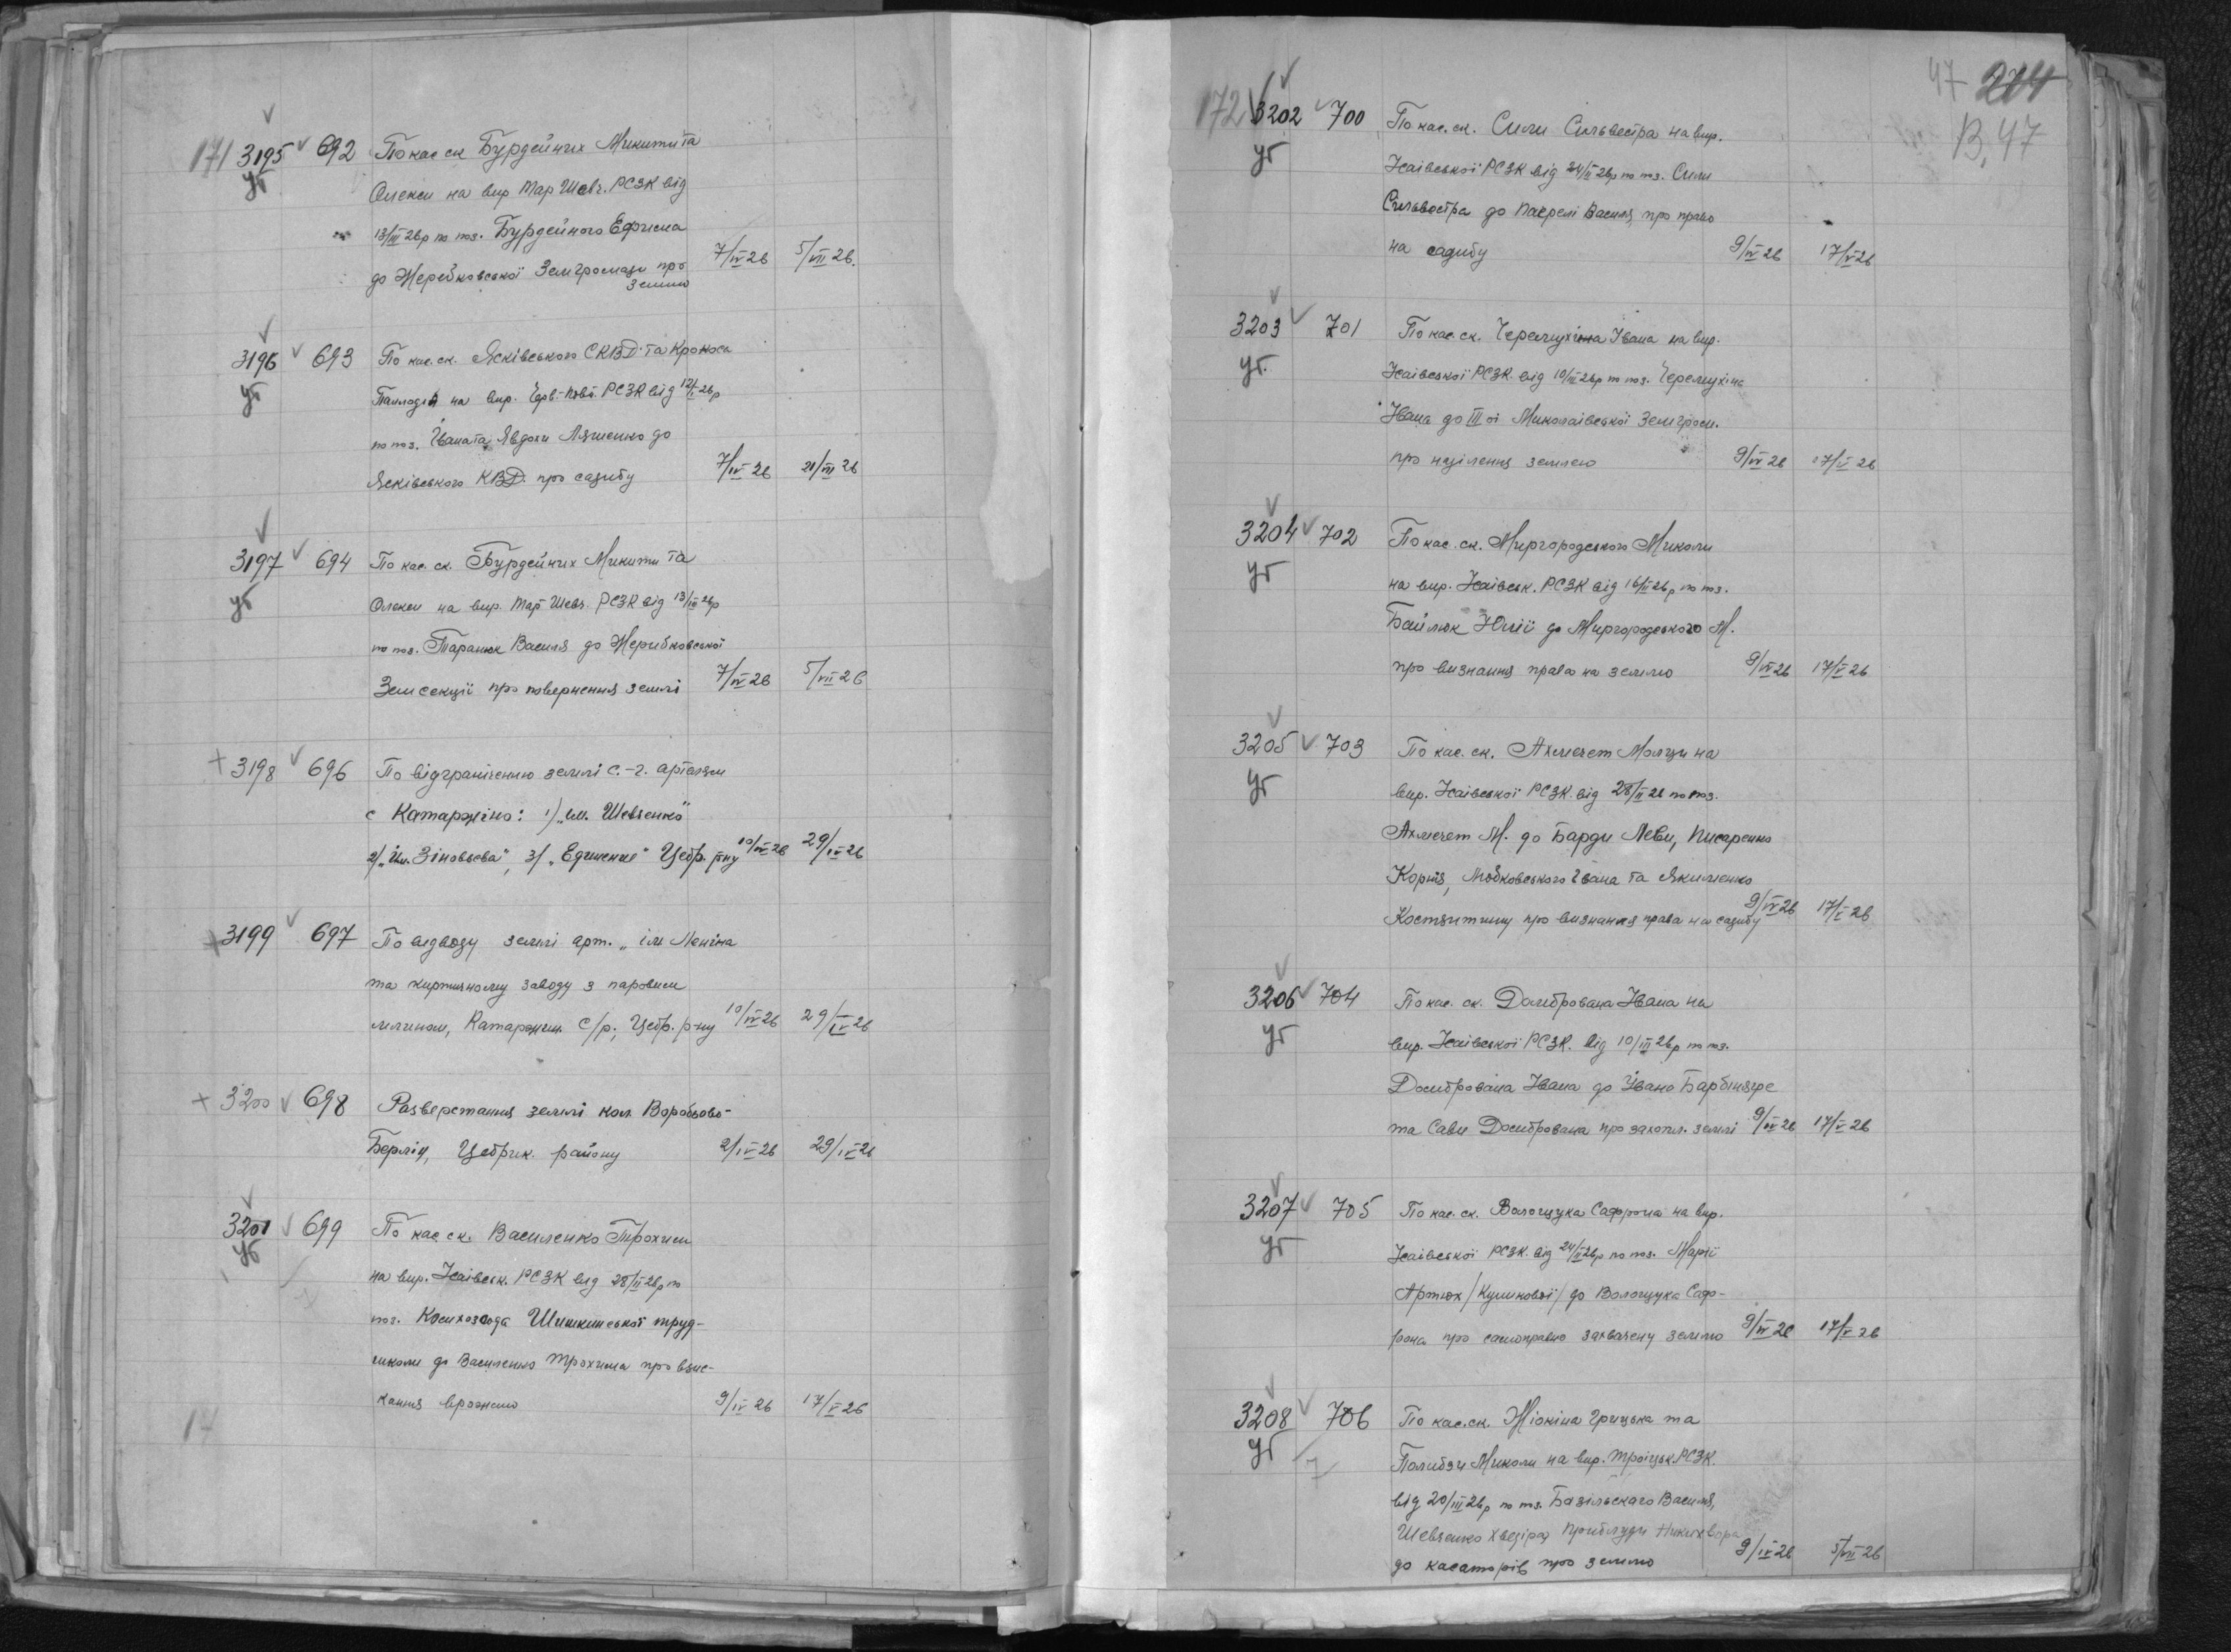 171 3195 692 По кас ск Бурдейних Микити та
уг Олекси на вир Мар Шевч. РСЗК від
13/III 26р по поз. Бурдейного Ефрема
до ЖеребковськоїЗемгромади про 7/IV 26 5/VII 26.
землю
3196 693 По кас. ск. Ясківського СКВД та Крокоса
уг Палладія на вир. Черв.-Пов. РСЗК від 12/I 26р
по поз. Івана та Явдохи Ляшенко до
Ясківського КВД. про садибу 7/IV 26 21/VIII 26
3197 694 По кас. ск. Бурдейних Микити та
уг Олекси на вир. Мар Шевч. РСЗК від 13/III 26р
по поз. Таранюк Василя до Жеребковської
Земсекції про повернення землі 7/IV 26 5/VII 26
+ 3198 696 По відграниченню землі с.-г. артілям
с Катаржіно: 1) „ім. Шевченко"
2) „Ім. Зіновьєва", 3) „Единение" Цебр. р-ну 10/IV 26 29/IV 26
+ 3199 697 По відводу землі арт. „ ім Леніна
та кирпичному заводу з паровим
млином, Катаржин. С/р; Цебр. р-ну 10/IV 26 29/IV 26
+ 3200 698 Разверстання землі кол. Воробьово-
Берлін, Цебрик. району 2/IV 26 29/IV 26
3201 699 По кас ск. Василенко Трохим
уг на вир. Ісаівськ. РСЗК від 28/II 26р по
поз. Шишкинської труд-
школи до Василенко Трохима про взис-
кання врожаю 9/IV 26 17/V 26
17
47 204
В, 47
172 3202 700 По кас. ск. Сили Сильвестра на вир.
уг Ісаівської РСЗК від 24/II 26р по поз. Сили
Сильвестра до Василя, про право
на садибу 9/IV 26 17/V 26
3203 701 По кас. ск. Черемухіна Івана на вир.
уг. Ісаівської РСЗК від 10/III 26р по поз. Черемухіна
Івана до III ої Миколаівської Земгром.
про наділення землею 9/IV 26 17/V 26
3204 702 По кас. ск. Миргородського Миколи
уг на вир. Ісаівськ. РСЗК від 16/II 26р по поз.
Байлюк Юлії до Миргородського М.
про визнання права на землю 9/IV 26 17/V 26
3205 703 По кас. ск. Ахмечет Мотзи на
уг вир. Ісаівської РСЗК від 28/II 26 по поз.
Ахмечет М. до Барди Леви, Писаренко
Корнія, Любковського Івана та Якименко
Костянтину про визнання права на садибу 9/IV 26 17/V 26
3206 704 По кас. ск. Домбрована Івана на
уг вир. Ісаівської РСЗК. від 10/III 26р по поз.
Домбрована Івана до Івана Барбінягре
та Сави Домбрована про захопл. землі 9/IV 26 17/V 26
3207 705 По кас. ск. Волощука Сафрона на вир.
уг Ісаівської РСЗК від 24/II 26р по поз. Марії
Артюх /Куликової/ до Волощука Саф-
рона про самоправно захвачену землю 9/IV 26 17/V 26
3208 706 По кас. ск. Жіокіна Грицька та
уг Полибзи Миколи на вир. Троіцьк. РСЗК.
від 20/III 26р по поз. Базільскаго Василя,
Шевченко Хведіра, Приблуди Никихвора
до касаторів про землю 9/IV 26 5/VII 26